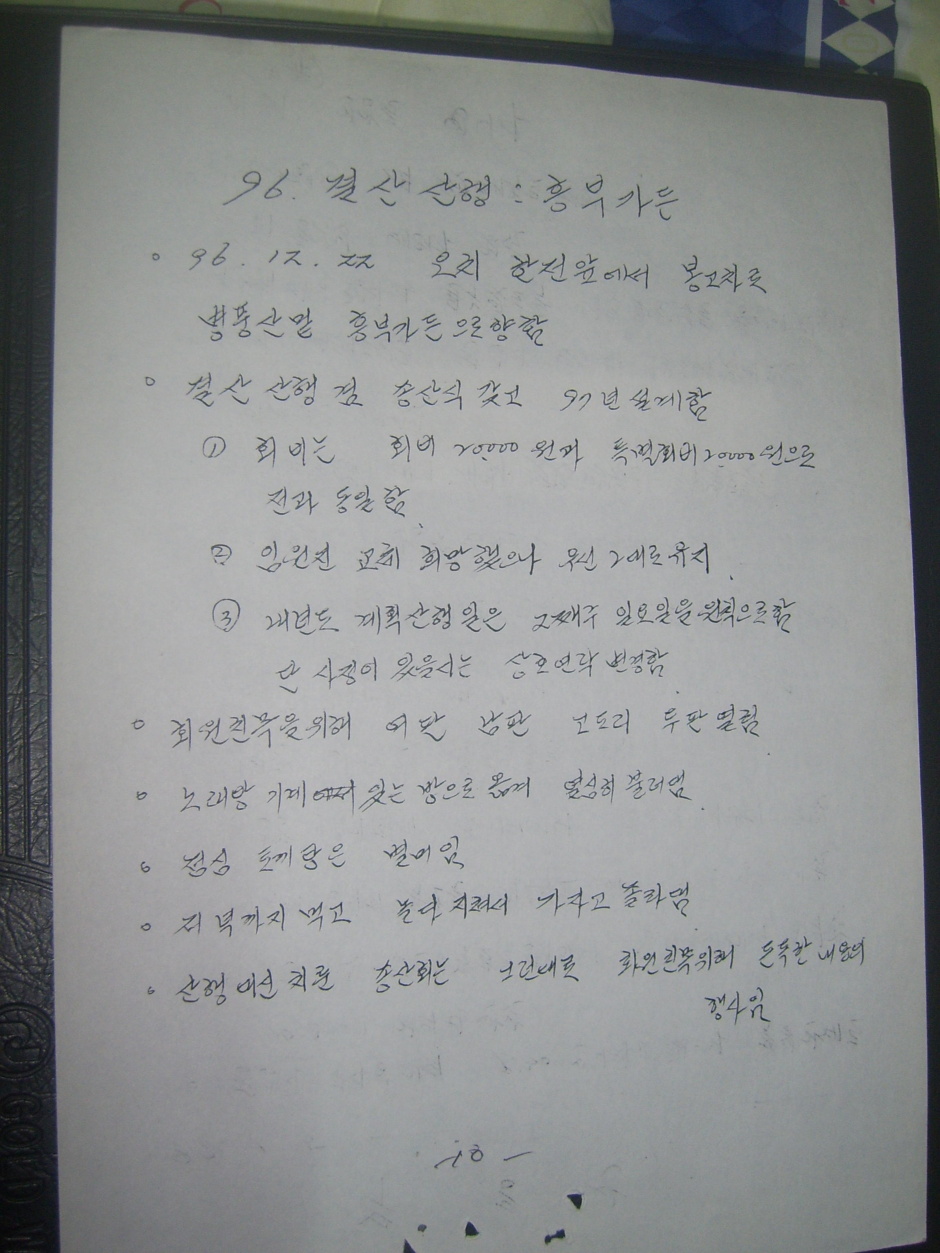 96. 결산 산행 : 흥부가든
◦ 96. 12. 22 오치 한전앞에서 봉고차로
병풍산밑 흥부가든으로향함
◦ 결산 산행 겸 송산식 갖고 97년 설계함
① 회비는 회비 20,000원과 특별회비 20,000원으로
전과 동일함
② 임원진 교체 희망했으나 우선 그대로유지
③ 내년도 계획산행일은 2째주 일요일을원칙으로함
단 사정이 있을시는 상호연락 변경함
◦ 회원친목을위해 여단 남판 고도리 두판 열림
◦ 노래방 기계 있는 방으로 옮겨 열심히 불러댐
◦ 점심 토끼탕은 별미임
◦ 저녁까지 먹고 놀다 지쳐서 가자고 졸라댐
◦ 산행대신 치룬 송산회는 그런대로 회원친목위해 돈독한 내용의
행사임
GOLD